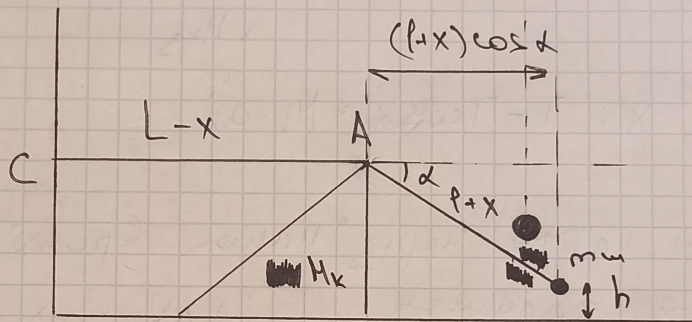 (l+x)cosα
L-x
A
C
α
l+x
Mк
mш
h